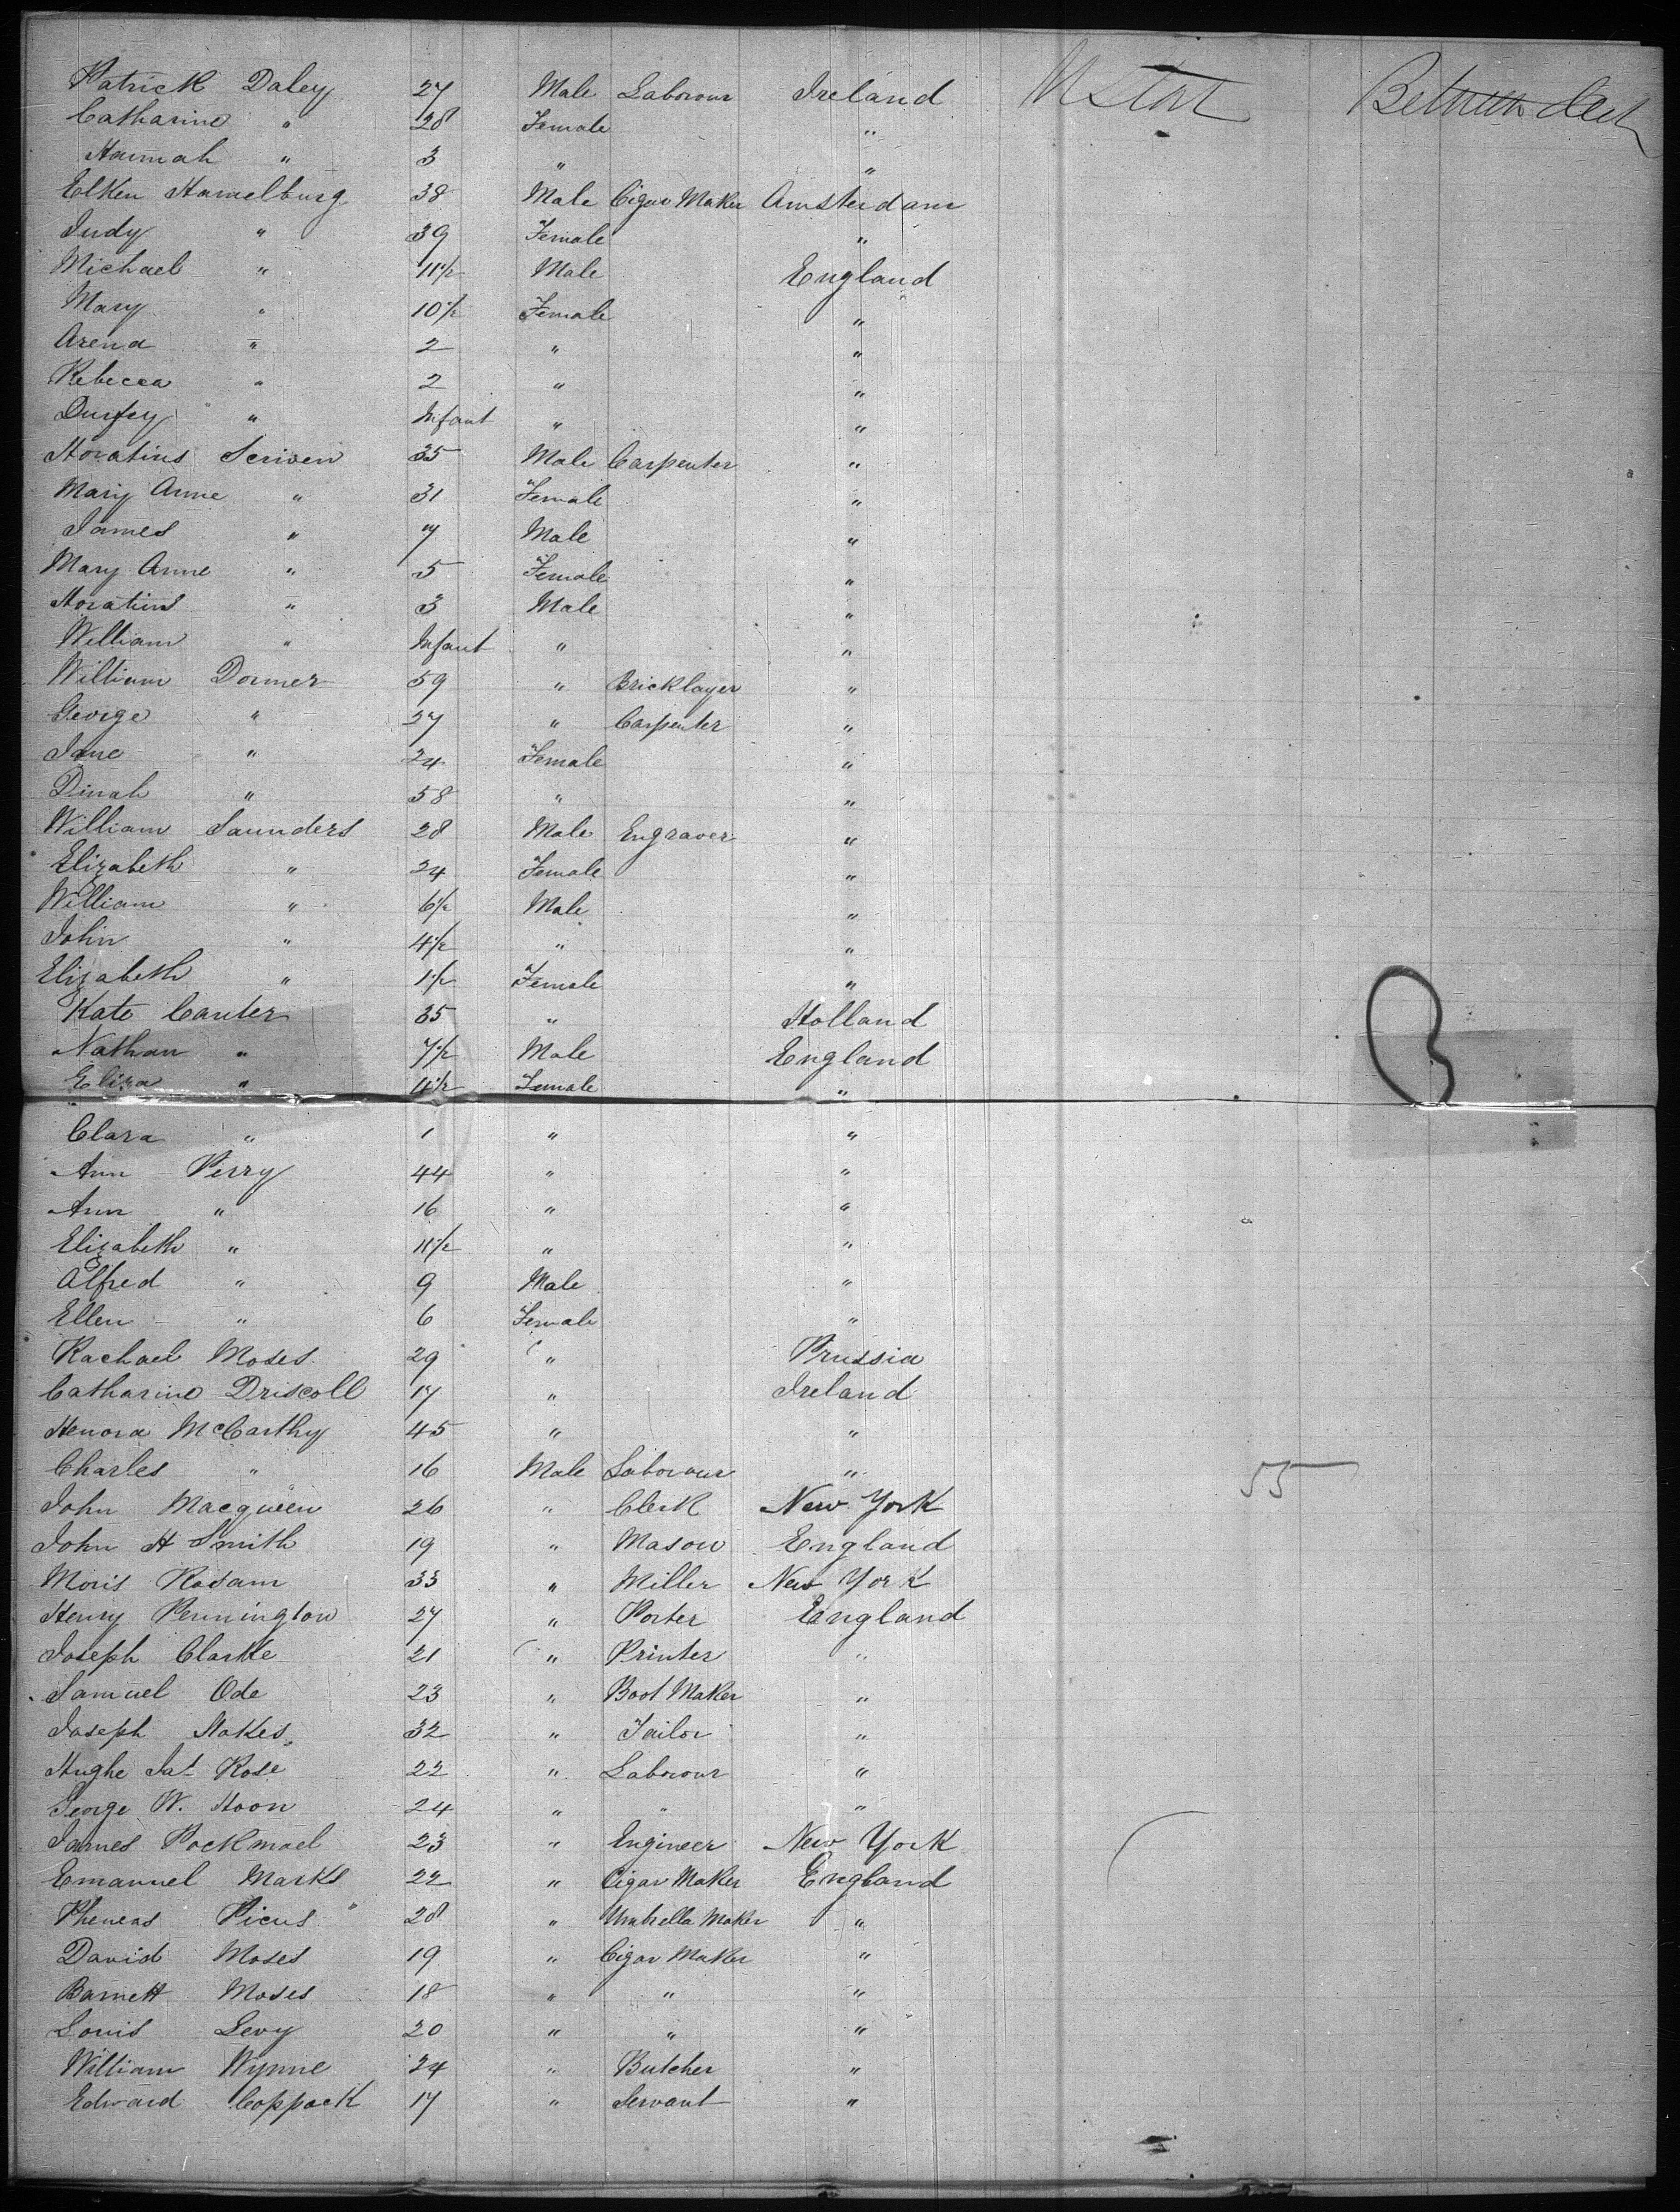 Patrick Daley 27 Male Labourer Ireland U Stat Between deck
Catharine " 28 Female "
Hannah " 3 " "
Elken Hamelburg 38 Male Cigar Maker Amsterdam
Judy " 39 Female "
Michael " 11 1/2 Male England
Mary " 10 1/2 Female "
Arena " 2 " "
Rebecca " 2 " "
" Infant " "
Horatius Scriven 35 Male Carpenter "
Mary Anne " 31 Female "
James " 7 Male "
Mary Anne " 5 Female "
Horatius " 3 Male "
William " Infant " "
William Dormer 59 " Bricklayer "
George " 27 " Carpenter "
Jane " 24 Female "
Dinah " 58 " "
William Saunders 28 Male Engraver "
Elizabeth " 24 Female "
William " 6 1/2 Male "
John " 4 1/2 " "
Elizabeth " 1 1/2 Female "
Kate Canter 35 " Holland
Nathan " 7 1/2 Male England
Eliza " 4 1/2 Female "
Clara " 1 " "
Ann Perry 44 " "
Ann " 16 " "
Elizabeth " 11 1/2 " "
Alfred " 9 Male "
Ellen " 6 Female "
Rachael Moses 29 " Prussia
Catharine Driscoll 17 " Ireland
Henora McCarthy 45 " "
Charles " 16 Male Labourer " 55
John Macqueen 26 " Clerk New York
John H Smith 19 " Mason England
Moris Rosam 33 " Miller New York
Henry Pennington 27 " Porter England
Joseph Clarke 21 " Printer "
Samuel Ode 23 " Boot Maker "
Joseph Nokes 32 " Tailor "
Hughe Jas Rose 22 " Labourer "
George W. Hoon 24 " " "
James Pockmael 23 " Engineer New York
Emanuel Marks 22 " Cigar Maker England
Pheneas Picus 28 " Umbrella Maker "
David Moses 19 " Cigar Maker "
Barnett Moses 18 " " "
Louis Levy 20 " " "
William Wynne 24 " Butcher "
Edward Coppack 17 " Servant "